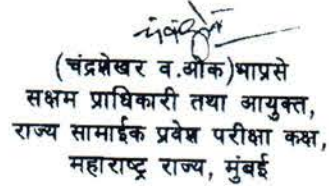 (चंद्रशेखर व.ओक)भाप्रसे
सक्षम प्राधिकारी तथा आयुक्त,
राज्य सामाईक प्रवेश परीक्षा कक्ष,
महाराष्ट्र राज्य, मुंबई